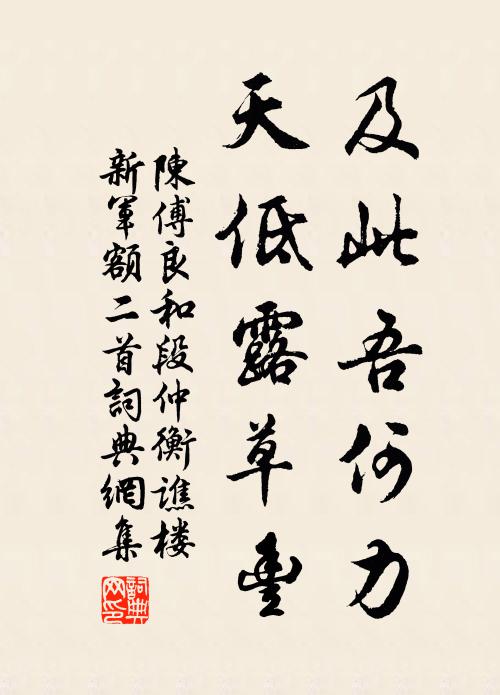 及此吾何力
天低露草豊
陳傅良和段仲衡譙楼
新軍額二首詞典網集
詞典网印